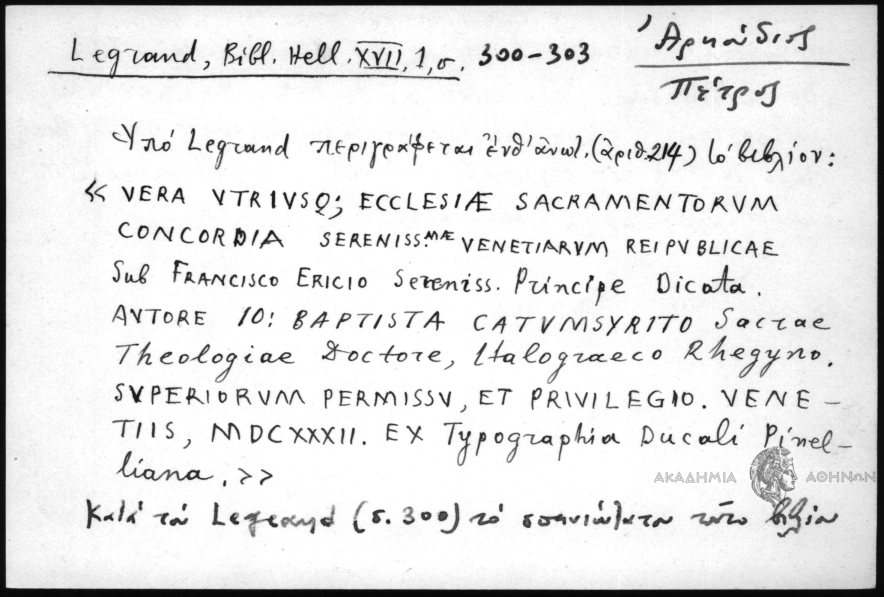 Legrand, Bibl. Hell. XVII, 1, σ. 300-303
Ἀρκούδιος
Πέτρος
Ὑπό Legrand περιγράφεται ἐνθ' ἀνωτ. (ἀριθ. 214) τό βιβλίον:
«VERA VTRIVSQ; ECCLESIÆ SACRAMENTORVM
CONCORDIA SERENISS.MÆ VENETIARVM REIPVBLICAE
Sub FRANCISCO ERICIO Sereniss. Principe Dicata.
AVTORE IO: BAPTISTA CATVMSYRITO Sacrae
Theologiae Doctore, Italograeco Rhegyno.
SVPERIORVM PERMISSV, ET PRIVILEGIO. VENE-
TIIS, MDCXXXII. EX Typographia Ducali Pinel-
liana.»
ΑΚΑΔΗΜΙΑ ΑΘΗΝΩΝ
Κατά τόν Legrand (σ. 300) τό σπανιώτατον τοῦτο βιβλίον